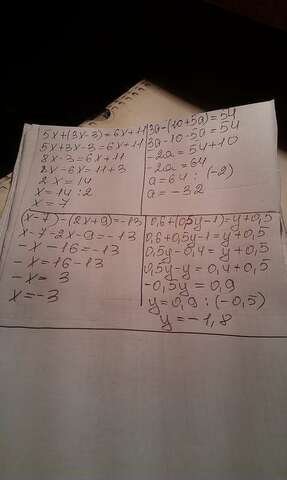 5x+(3x-3)=6x+11
5x+3x-3=6x+11
8x-3=6x+11
8x-6x=11+3
2x=14
x=14:2
x=7
3a-(10+5a)=54
3a-10-5a=54
-2a=54+10
-2a=64
a=64:(-2)
a=-32
(x-7)-(2x+9)=-13
x-7-2x-9=-13
-x-16=-13
-x=16-13
-x=3
x=-3
0,6+(0,5y-1)=y+0,5
0,6+0,5y-1=y+0,5
0,5y-0,4=y+0,5
0,5y-y=0,4+0,5
-0,5y=0,9
y=0,9:(-0,5)
y=-1,8